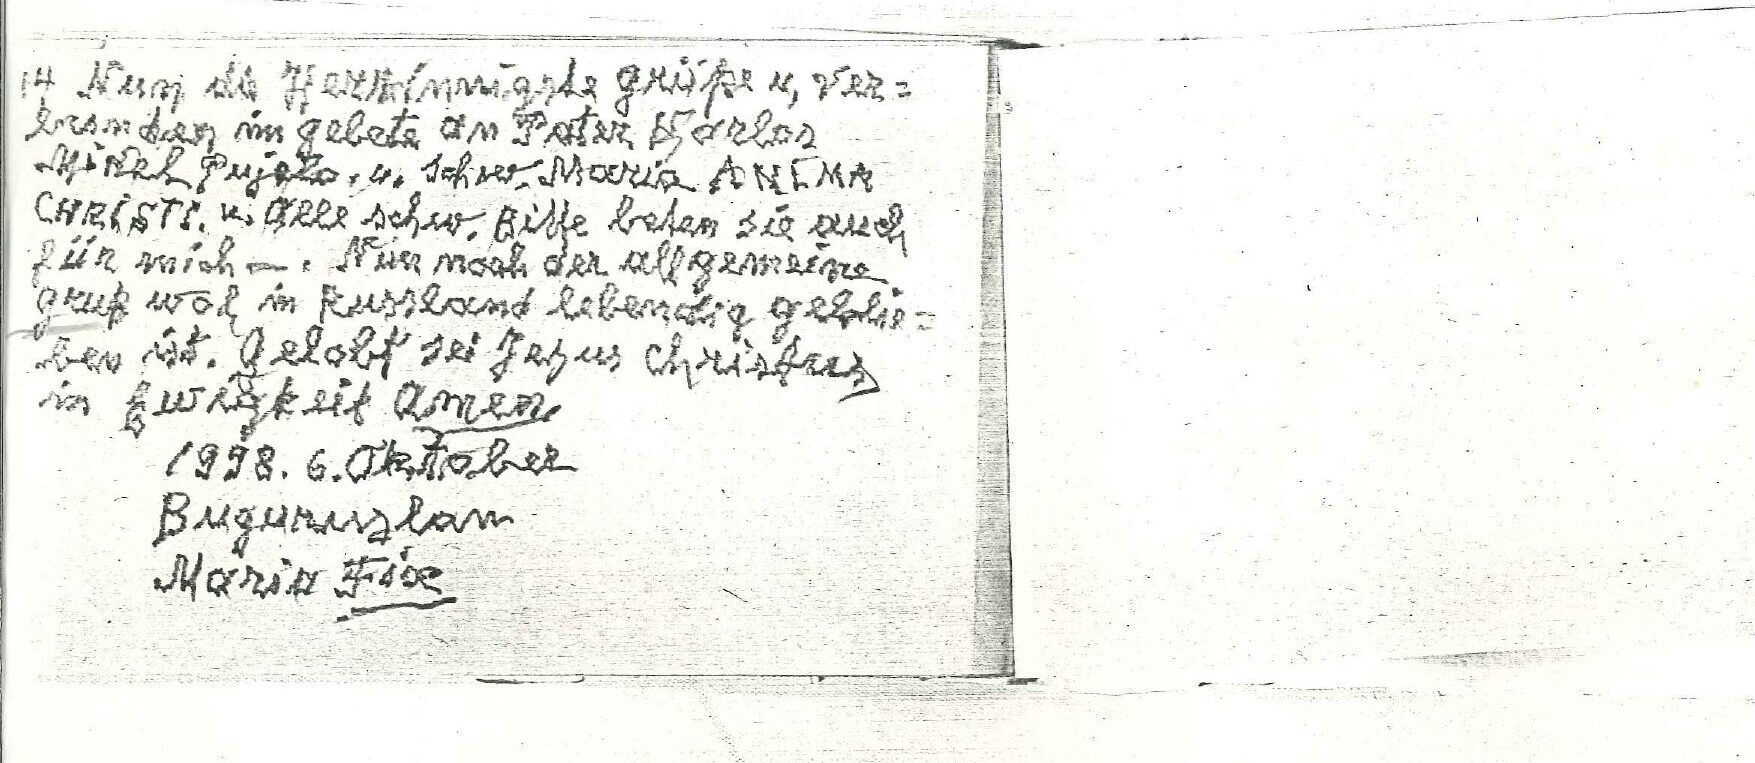 14 Nun die Herzinnigste grüße u, ver=
bunden im gebete an Pater Karlos
u. schw. Maria ANIMA
CHRISTI. u. Alle schw. Bitte beten sie auch
für mich —. Nun noch der allgemeine
gruß woh in Russland lebendig geblie=
ben ist. Gelobt sei Jesus christus
in Ewigkeit Amen.
1998. 6. Oktober
Buguruslan
Maria Fix